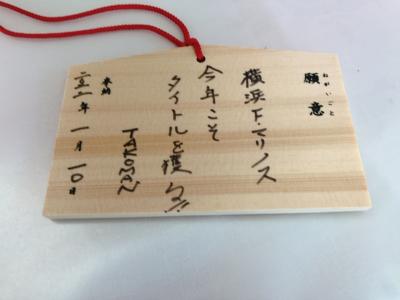 願意
ねがいごと
横浜F・マリノス
今年こそ
タイトルを獲る!!
TAKOMAN
奉納
年 一月 一〇日